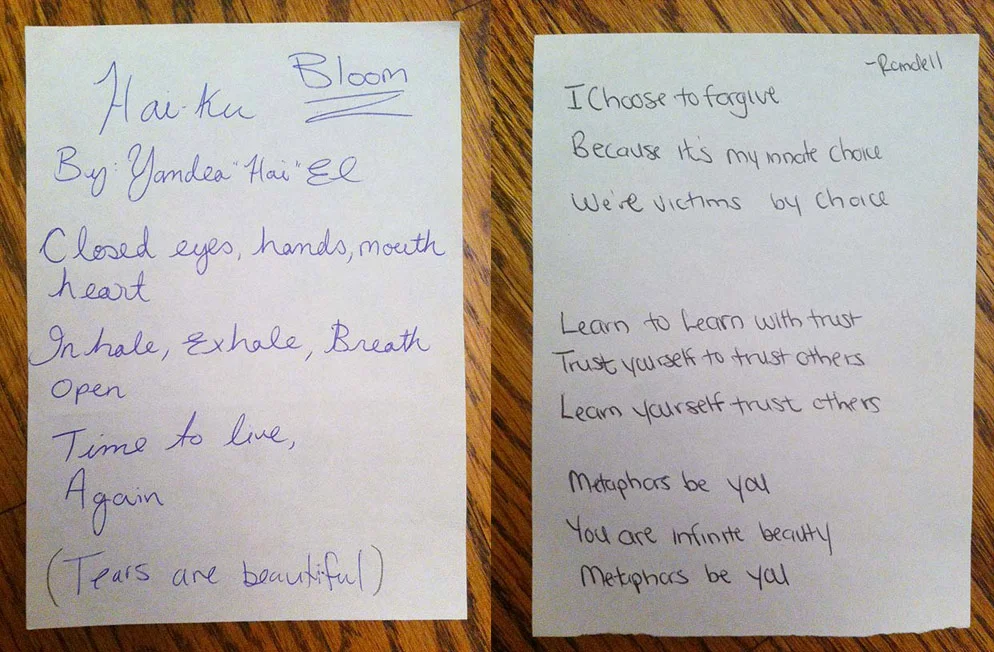 Hai-Ku Bloom
By: Yandea "Hai" El
Closed eyes, hands, mouth
heart
Inhale, Exhale, Breath
Open
Time to live,
Again
(Tears are beautiful)
-Ramdell
I Choose to forgive
Because it's my innate choice
We're victims by choice
Learn to Learn with trust
Trust yourself to trust others
Learn yourself trust others
Metaphors be you
You are infinite beauty
Metaphors be you